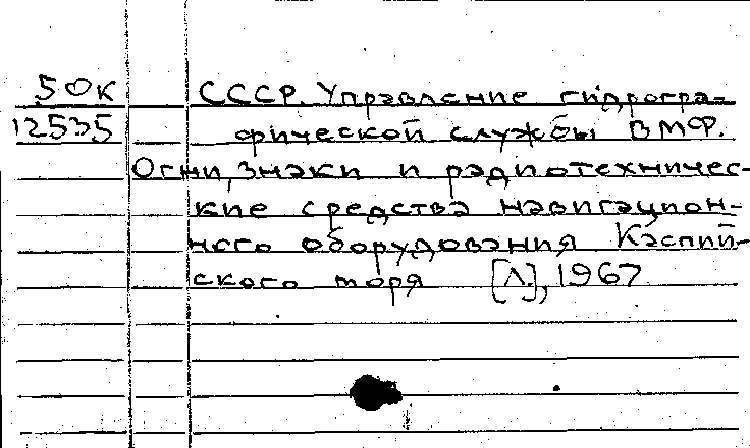 50к СССР. Управление гидрогра-
12535 фической службы ВМФ.
Огни, знаки и радиотехничес-
кие средства навигацион-
ного оборудования Каспий-
ского моря [Л.], 1967